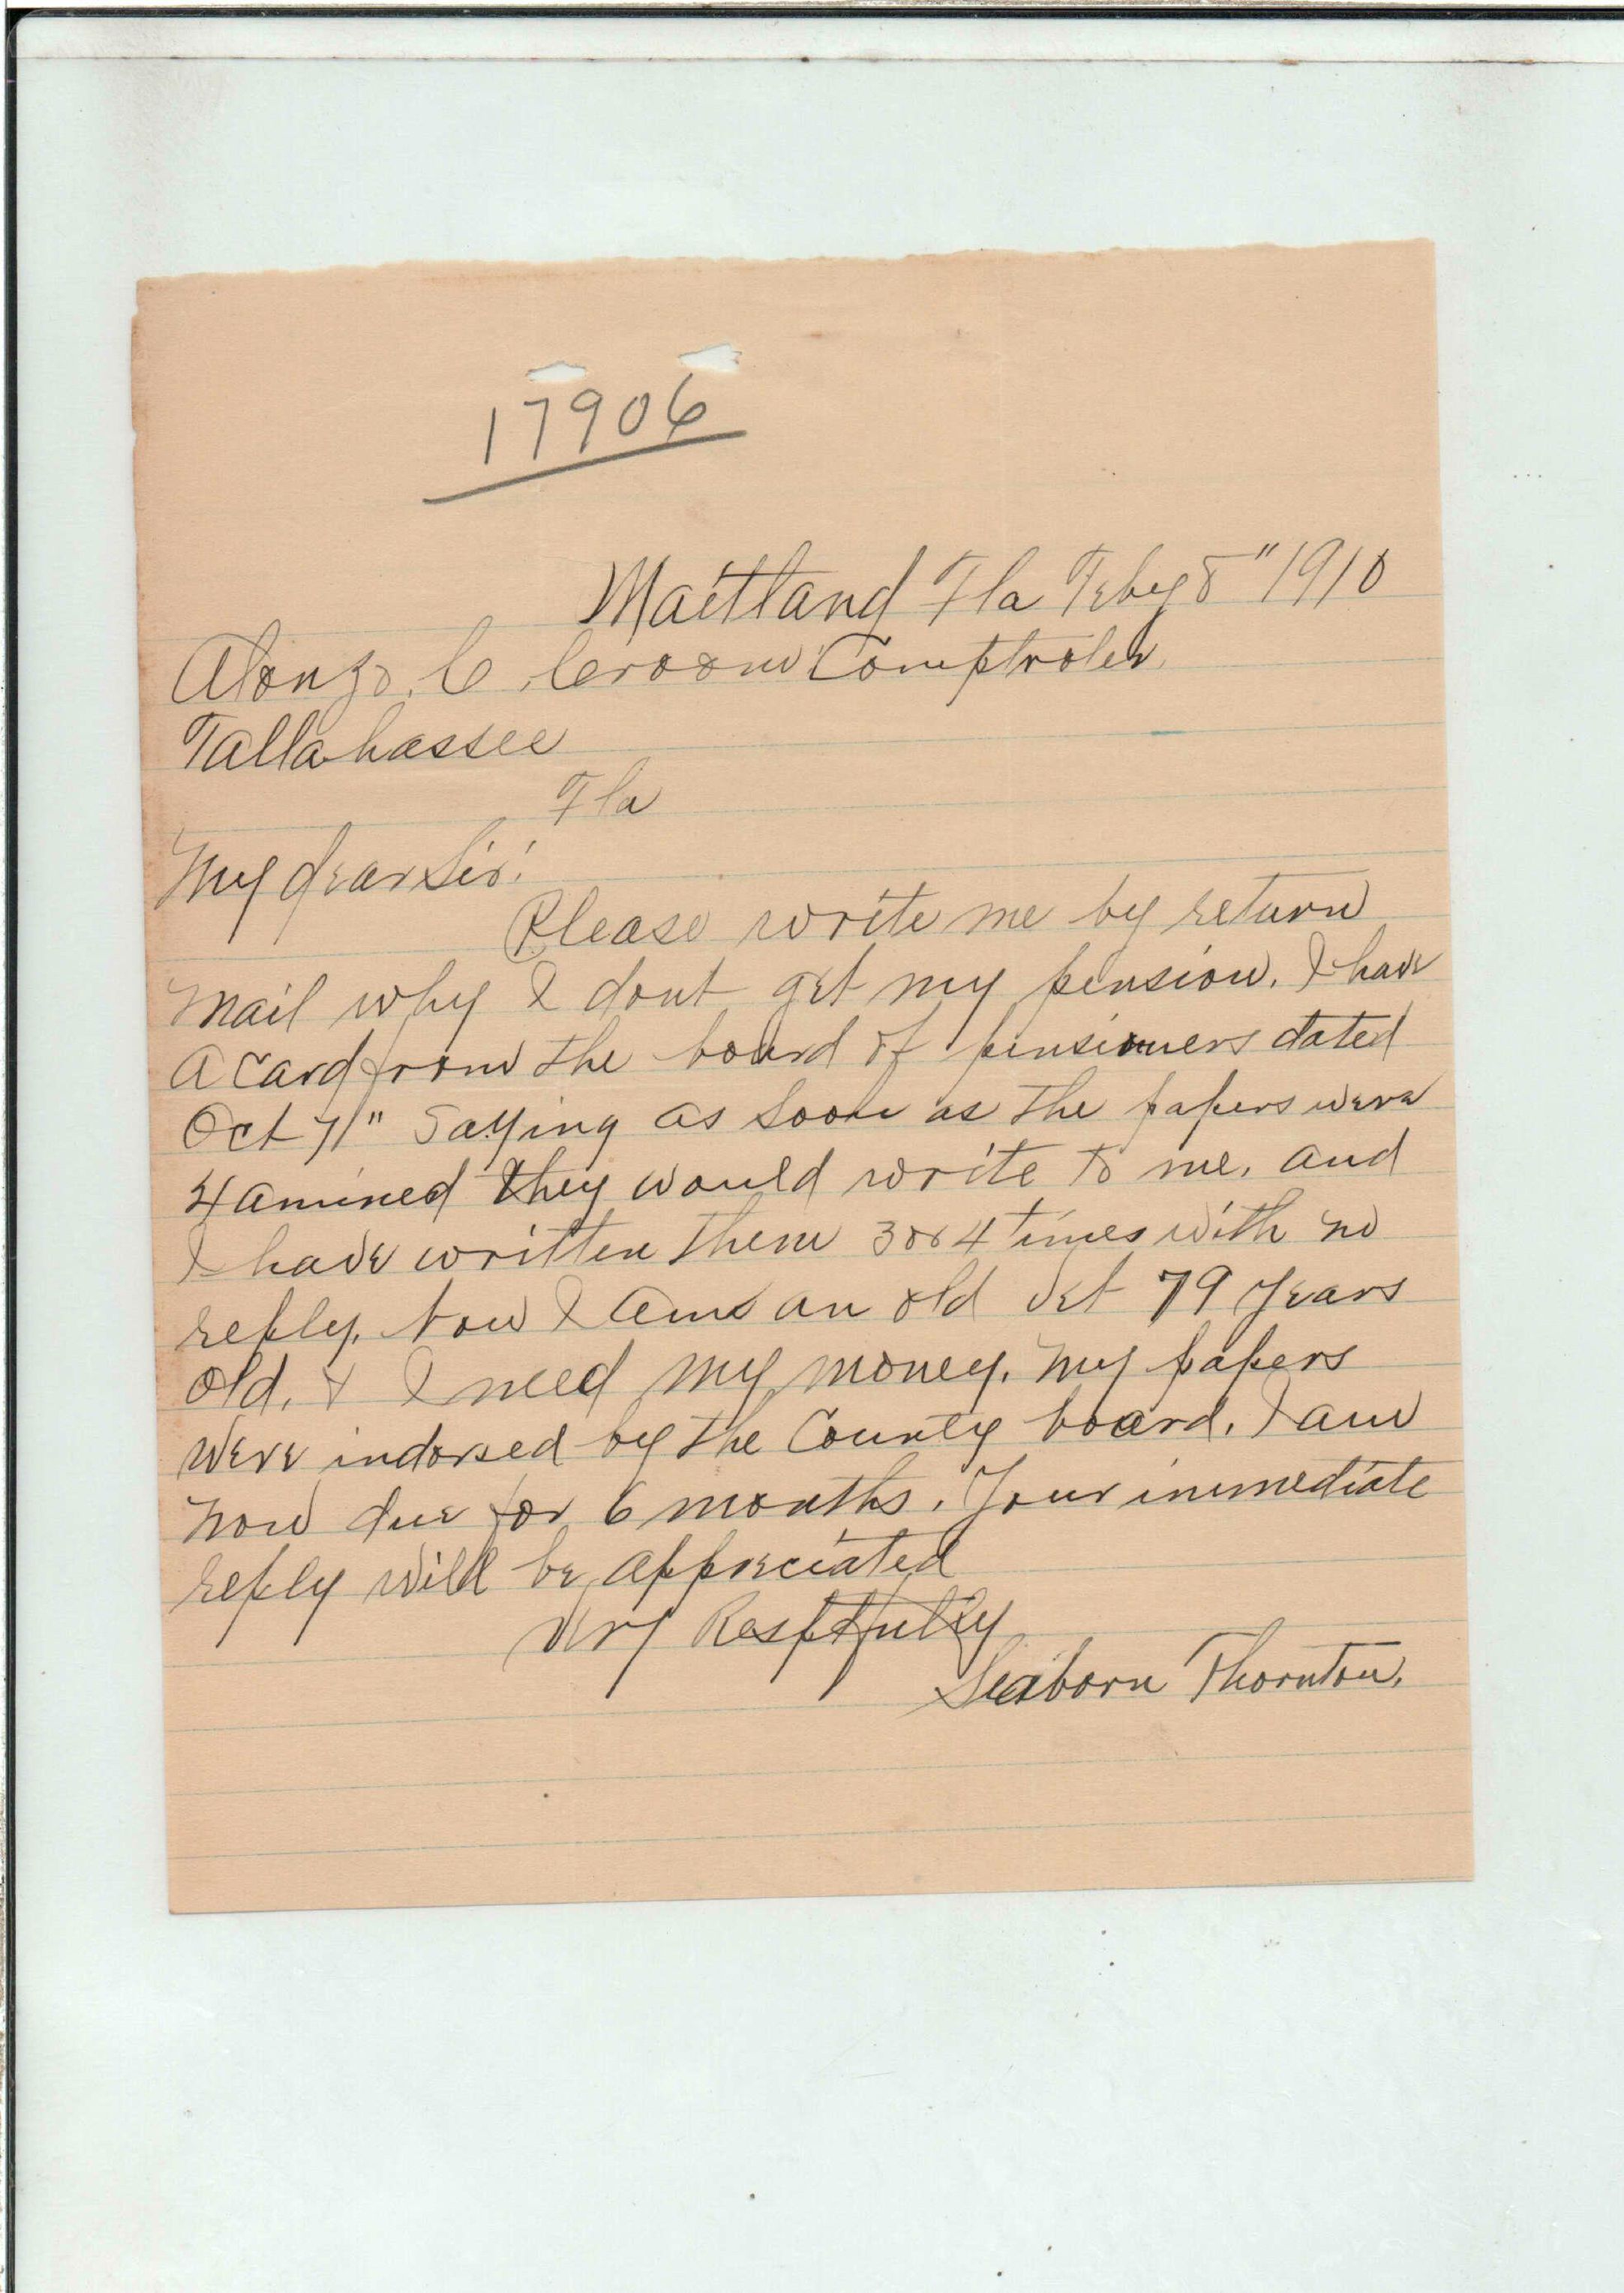 17906
Maitland Fla Feby 8" 1910
Alonzo. C. Croom Comptroler
Tallahassee
Fla
My dear Sir!
Please write me by return
mail why I dont get my pension. I have
a card from the board of pensioners dated
Oct 71" saying as soon as the papers were
Xamined they would write to me, and
I have written them 3 or 4 times with no
reply. Now I am an old vet 79 years
old. & I need my money. my papers
were indorsed by the County board. I am
now due for 6 months. Your immediate
reply will be appreciated
Very Respectfully
Seaborn Thornton.